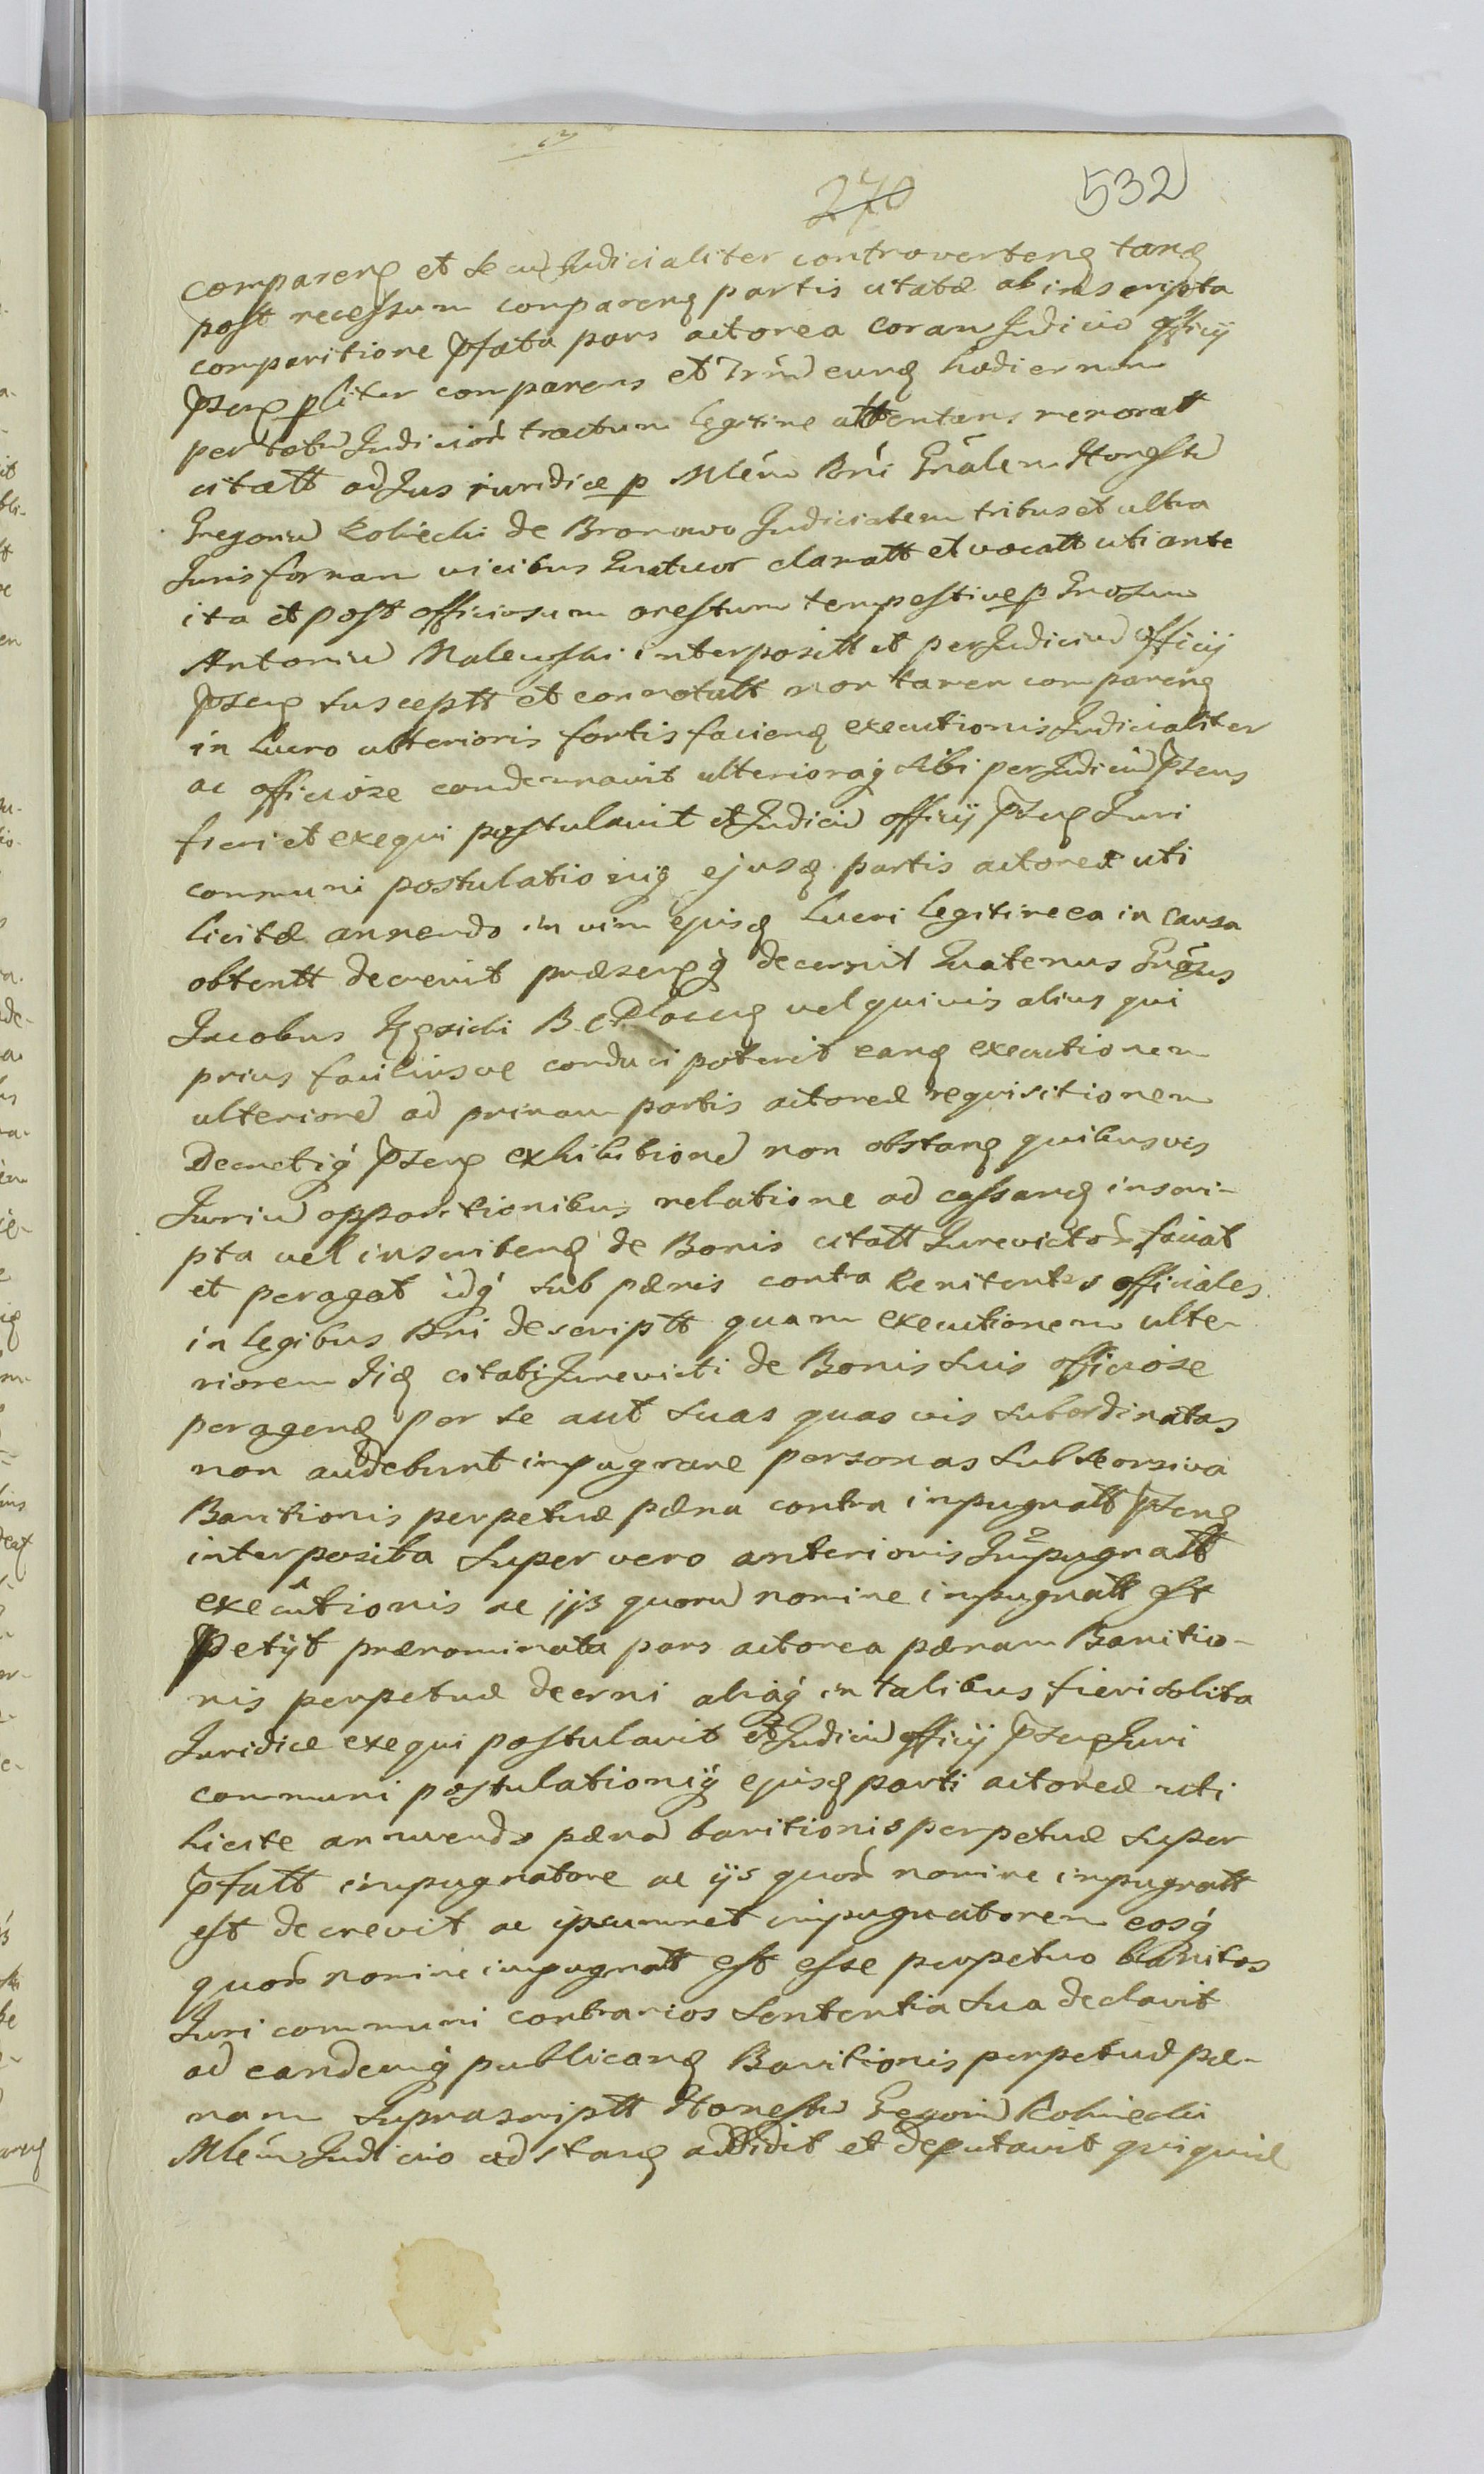 270 532
comparenđ et secũ Judicialiter controvertenđ tanđ
post recessum comparenđ partis citatæ ab inscripta
comparitione p̃fata pars actorea coram Judicio officij
p̃senđ pliter comparens et Trm̃ eunđ hodiernum
per totũ Judicior̃ tractum legitime attentans memoratt
citatt ad Jus juridice p Mlem̃ Rni Gñalem Honestũ
Gregoriũ de Bronowo Judicialem tribus et ultra
Juris formam vicibus Quatuor clamatt et vocatt uti ante
ita et post officiosum arestum tempestive p Gnosum
Antoniũ Malewski interpositt et per Judiciũ officij
p̃senđ susceptt et connotatt non tamen comparenđ
in lucro ulterioris fortis faciend executionis Judicialiter
ac officiose condemnavit ulterioraq́ sibi per Judiciũ p̃sens
fieri et exequi postulavit et Judiciũ officij p̃senđ Juri
communi postulationiq́ ejusđ partis actoreæ uti
licitæ annuendo in vim ejusđ lucri legitime ea in causa
obtentt decrevit præsenđq́ decernit Quatenus Gñosus
Jacobus B. C. Plocenđ vel quivis alius qui
prius faciliusve conduci poterit eanđ executionem
ulteriorẽ ad primam partis actoreæ requisitionem
Decretiq́ p̃senđ exhibitionẽ non obstanđ quibusvis
Juriũ oppositionibus relatione ad cassanđ inscri-
pta vel inscribenđ de Bonis citatt Jurevictor̃ faciat
et peragat idq́ sub pænis contra Renitentes officiales
in legibus Rni descriptt quam executionem ulte-
riorem iiđ citati Jurevicti de Bonis suis officiose
peragenđ per se aut suas quasvis subordinatas
non audebunt impugnare personas sub seorsiva
Banitionis perpetuæ pæna contra impugnatt p̃senđ
interposita super vero anterioris Impugnatt
executionis ac ijs quorũ nomine impugnatt est
Petijt prænominata pars actorea pænam Banitio-
nis perpetuæ decerni aliaq́ in talibus fieri solita
Juridice exequi postulavit et Judiciũ officij p̃senđ Juri
communi postulationiq́ ejusđ parti actoreæ uti
licite annuendo pænã banitionis perpetuæ super
p̃fatt impugnatore ac ijs quor̃ nomine impugnatt
est decrevit ac ipsummet impugnatorem eosq́
quor̃ nomine impugnatt est esse perpetuo banitos
Juri communi contrarios Sententia sua declavit
ad eandemq́ publicanđ Banitionis perpetuæ pæ-
nam suprascriptt Honestũ Gregoriũ
Mlem̃ Judicio adstanđ addidit et deputavit qui quidẽ